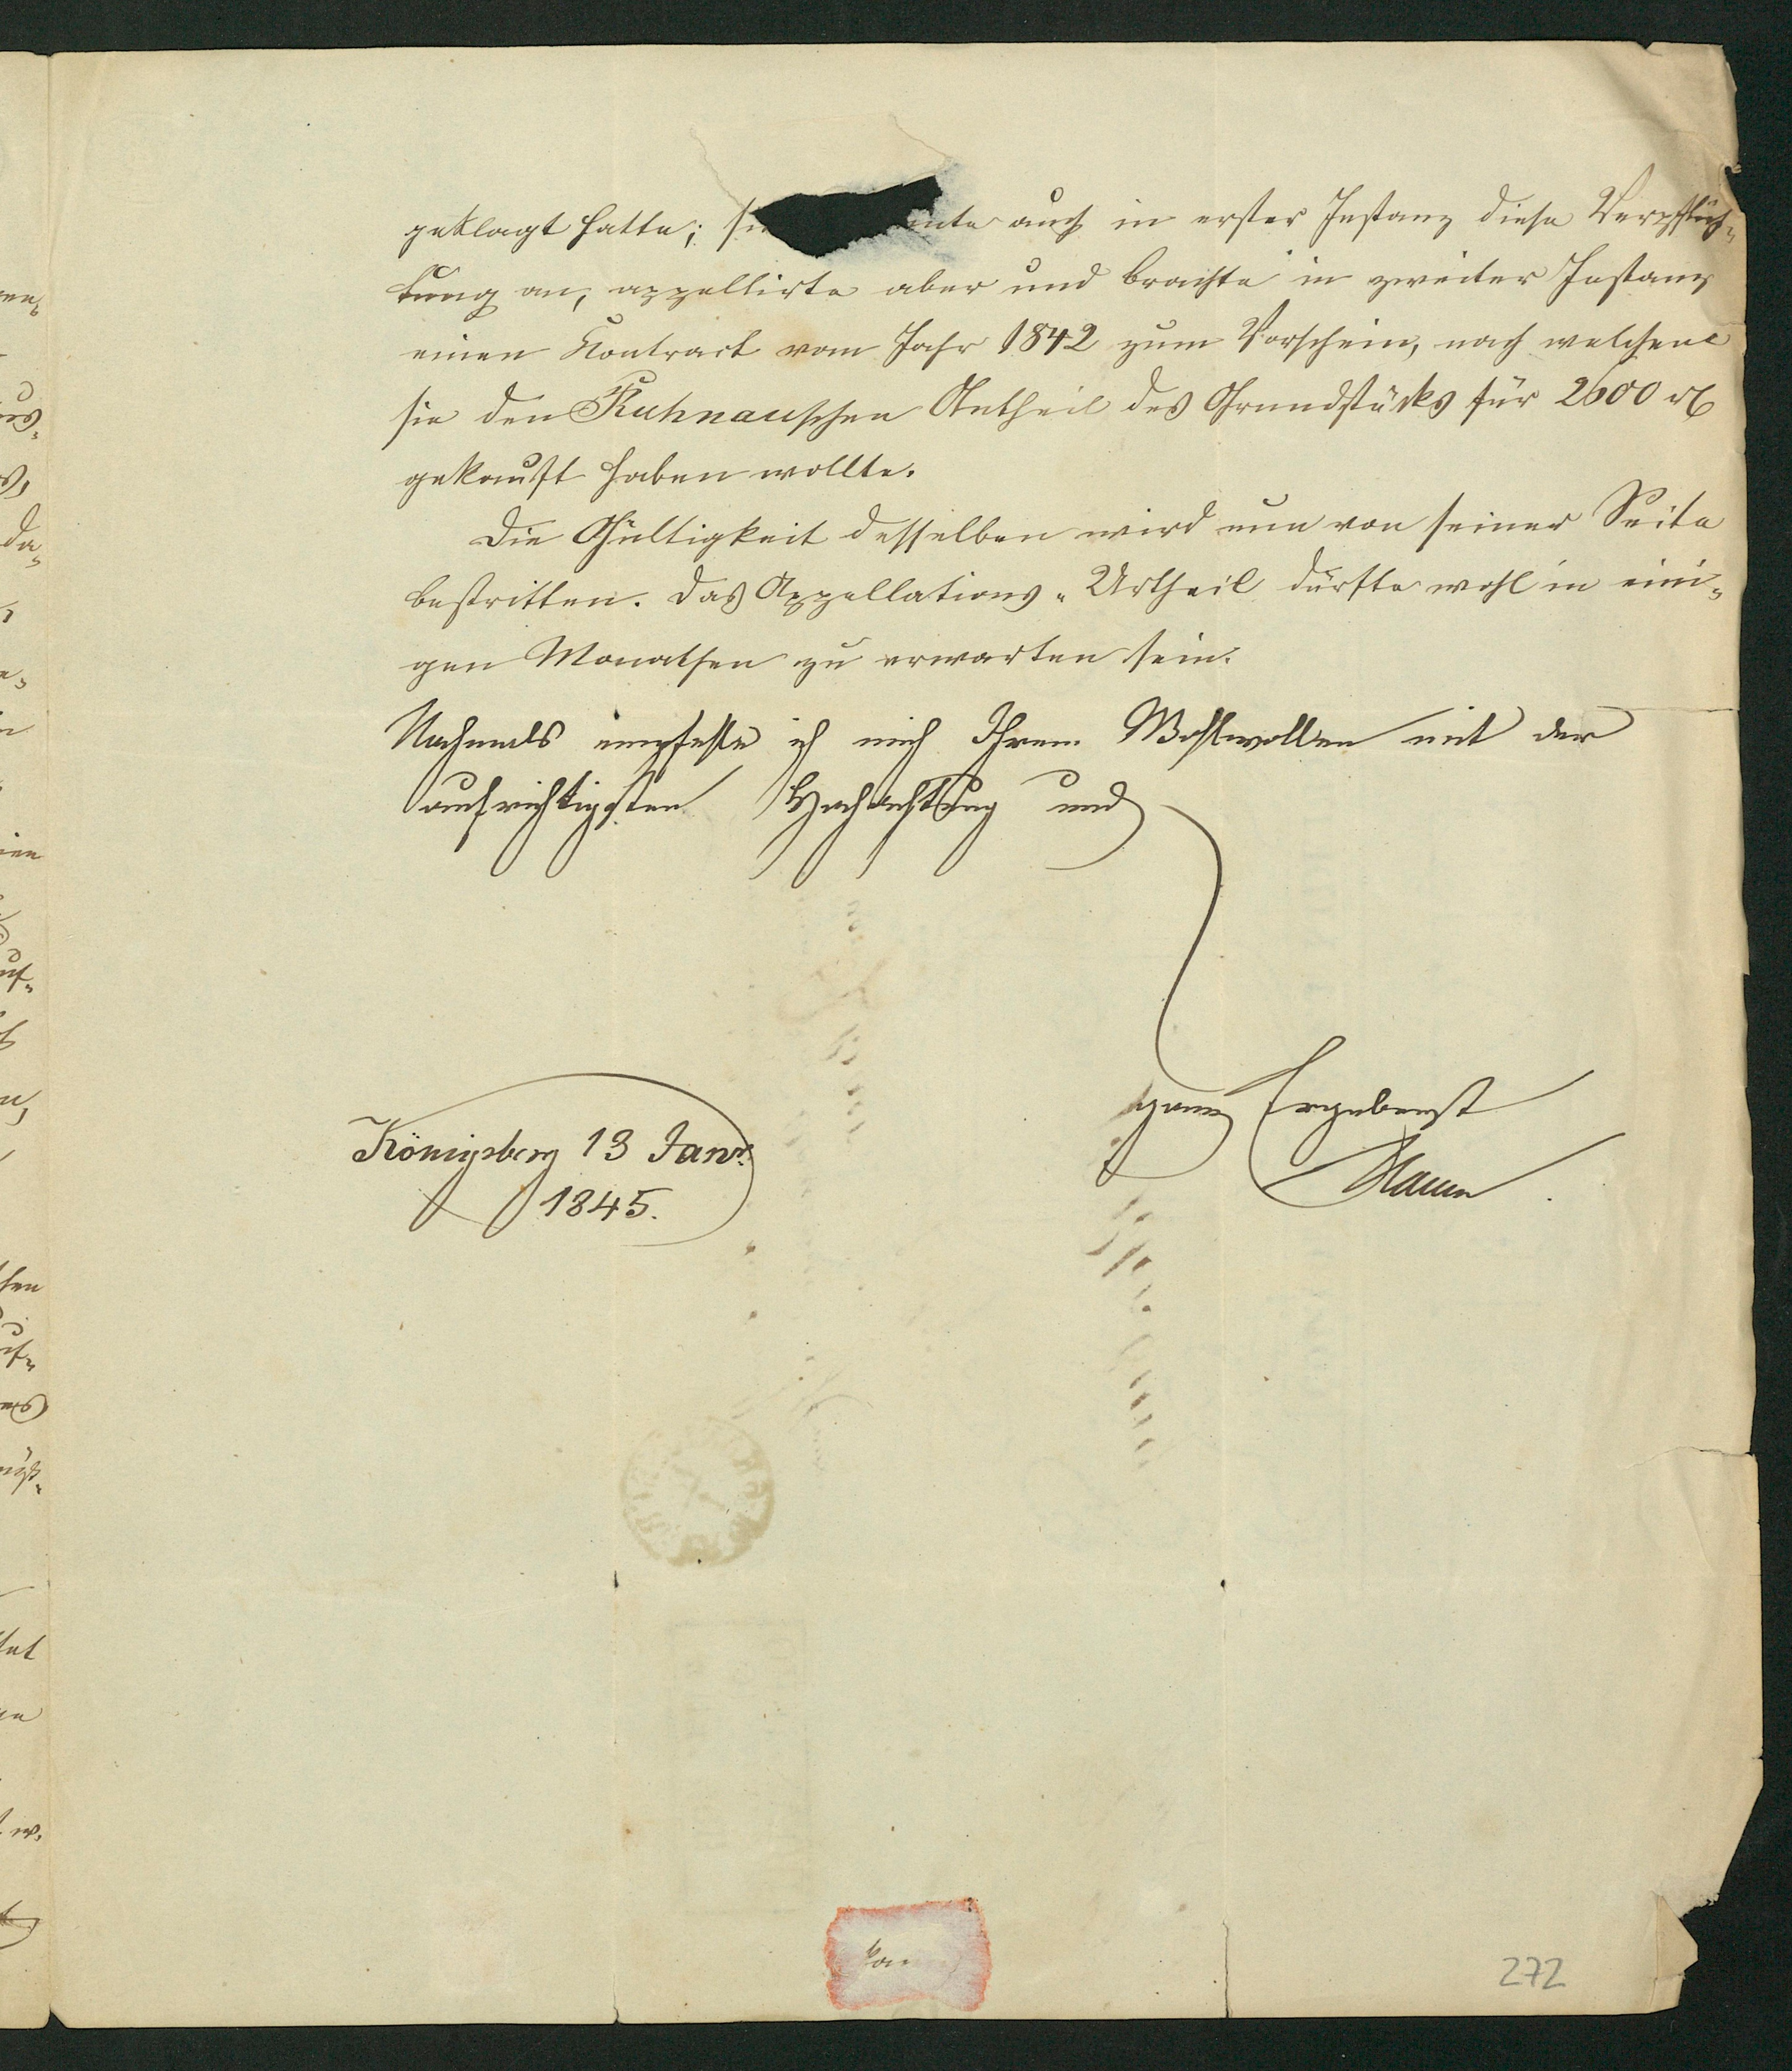 geklagt hatte; sie nnte auch in erster Instanz diese Verpflich-
tung an, appellirte aber und brachte in zweiter Instanz
einen Kontract vom Jahr 1842 zum Vorschein, nach welchem
sie den Kuhnauschen Antheil des Grundstücks für 2600 rt
gekauft haben wollte.
Die Gültigkeit desselben wird nun von seiner Seite
bestritten. Das Appellations-Urtheil dürfte wohl in eini-
gen Monathen zu erwarten sein.
Nochmals empfehle ich mich Ihrem Wohlwollen mit der
aufrichtigsten Hochachtung und
ganz Ergebenst
Königsberg 13 Janr.
1845.
kann
272